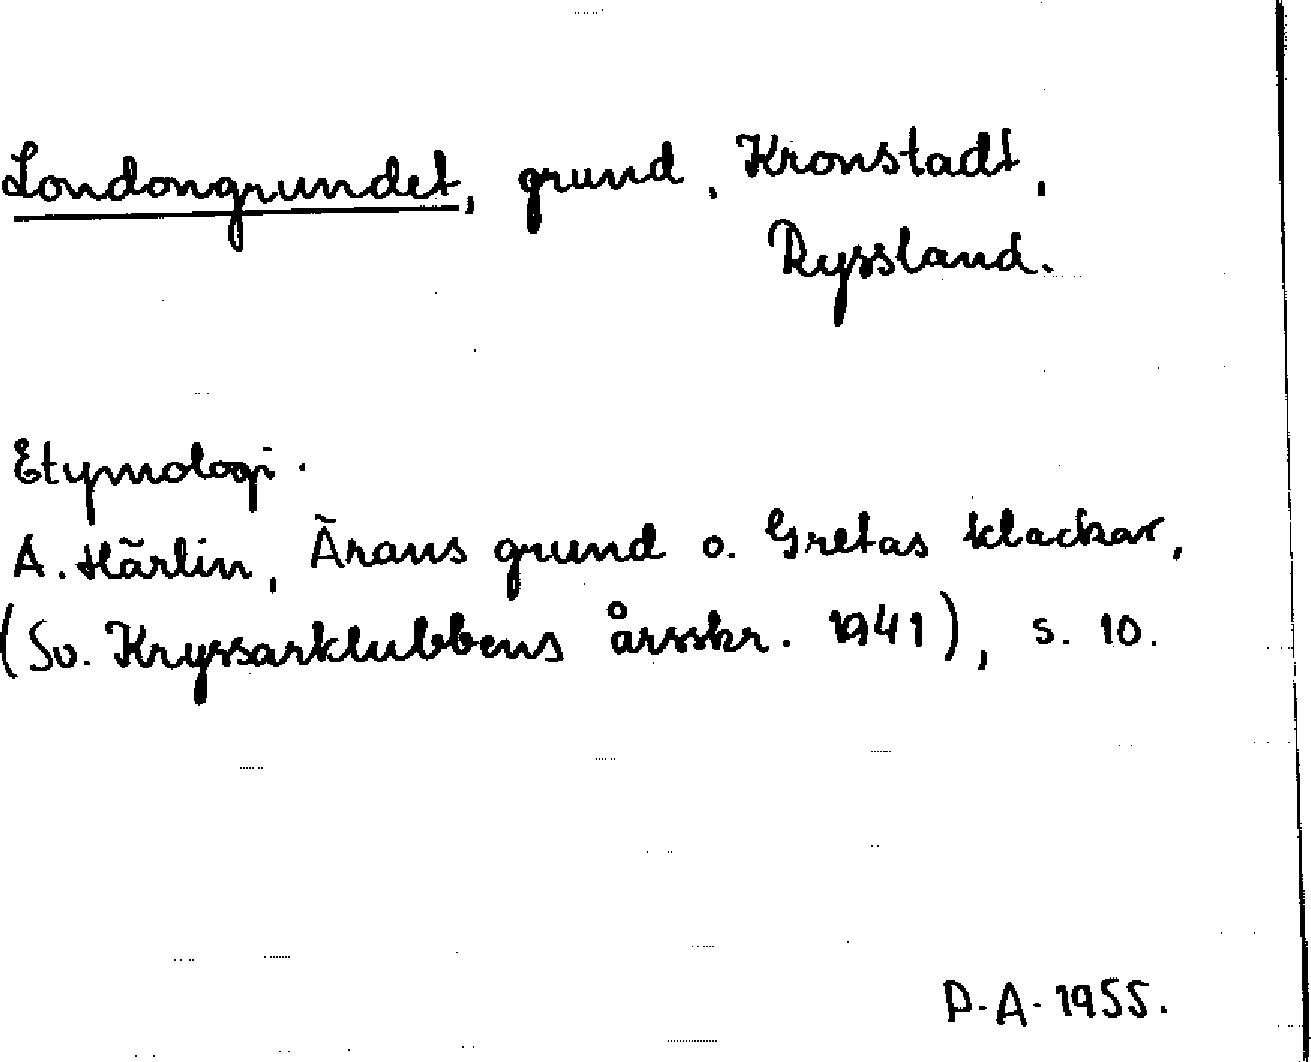 Londongrundet, grund, Kronstadt,
Ryssland.
Etymologi.
A. Härlin, Ärans grund o. Gretas klackar,
(Sv. Kryssarklubbens årsskr. 1941), s. 10.
P.A. 1955.